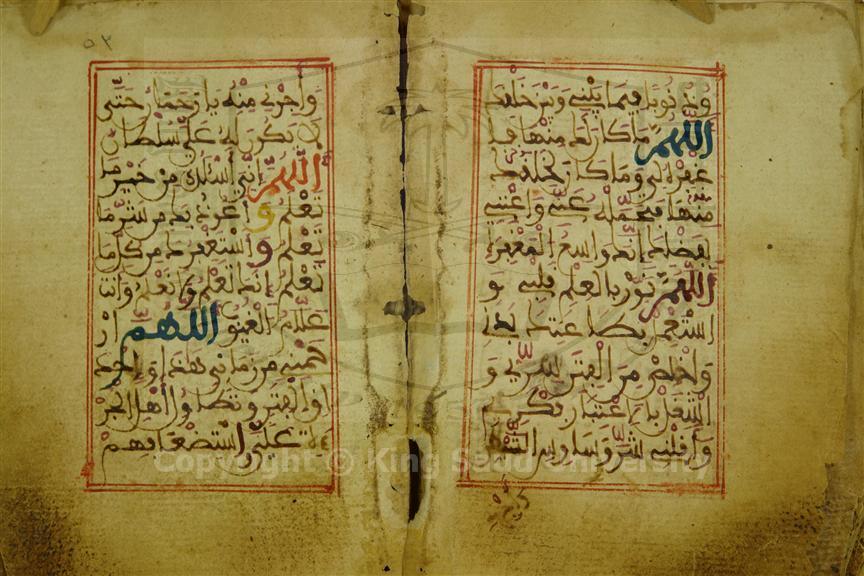 وذنوبا فيما بيني وبين خلقك
اللهم ما كان لك منها فا
غفره لي وما كان لخلقك
منها فتحمله عني واغنني
بفضلك إنك واسع المغفرة
اللهم نور بالعلم قلبي و
استعمل بطاعتك بدني
وخلص من الفتن سري و
اشغل بالاعتبار فكري
وقني شر وساوس الشيطا
٥٢
وأجرني منه يا رحمان حتى
لا يكون له علي سلطان
اللهم إني أسئلك من خير ما
تعلم وأعوذ بك من شر ما
تعلم وأستغفرك من كل ما
تعلم إنك تعلم ولا نعلم وأنت
علام الغيوب اللهم ار
حمني من زماني هذا وإحد
اق الفتن وتطاول أهل الجر
أة علي واستضعافهم
Copyright © King Saud University